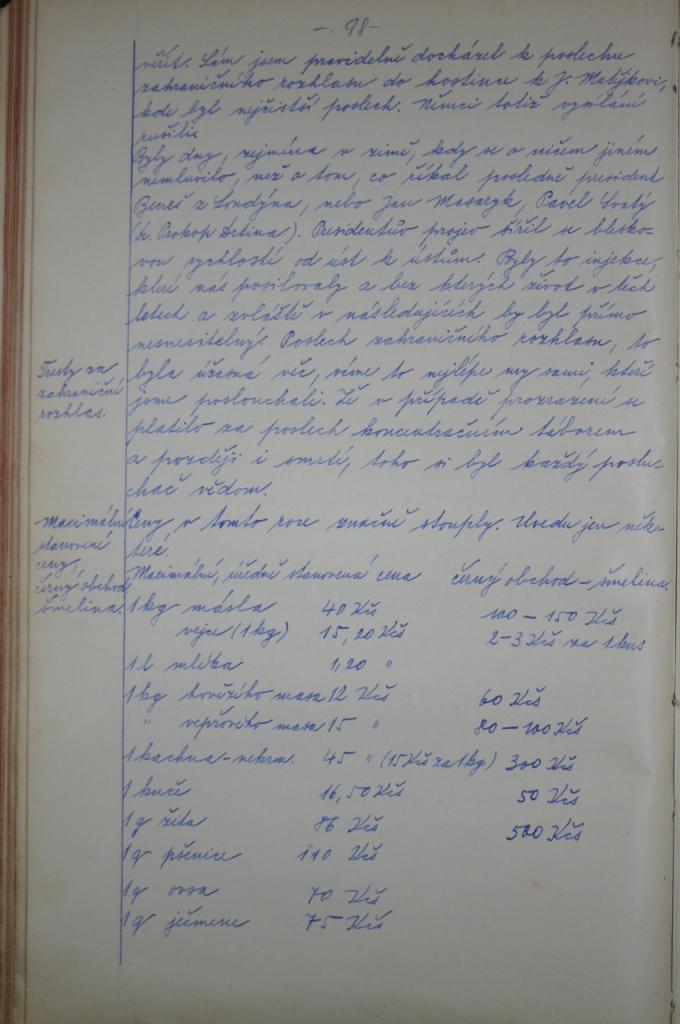 -. 98-
věřit. Sám jsem pravidelně docházel k poslechu
zahraničního rozhlasu do hostince k J. Matýskovi,
kde byl nejčistší poslech. Němci totiž vysílání
rušili.
Byly dny, zejména v zimě, kdy se o ničem jiném
nemluvilo, než o tom, co říkal posledně president
Beneš z Londýna, nebo Jan Masaryk, Pavel Svatý
(Dr. Prokop Drtina). Presidentův projev šířil se blesko-
vou rychlostí od úst k ústům. Byly to injekce,
které nás posilovaly a bez kterých život v těch
letech a zvláště v následujících by byl přímo
nesnesitelný. Poslech zahraničního rozhlasu, to
Tresty za
zahraniční
rozhlas.
byla úžasná věc, víme to nejlépe my sami, kteří
jsme poslouchali. Že v případě prozrazení se
platilo za poslech koncentračním táborem
a později i smrtí, toho si byl každý poslu-
chač vědom.
Maximální
stanovené
ceny,
černý obchod
šmelina.
Ceny v tomto roce značně stouply. Uvedu jen něk-
teré.
Maximální, úředně stanovená cena černý obchod - šmelina.
1 kg másla 40 Kčs 100 - 150 Kčs
vejce (1 kg) 15,20 Kčs 2-3 Kčs za 1 kus
1 l mléka 1,20 "
1 kg hovězího masa 12 Kčs 60 Kčs
" vepřového masa 15 " 80 - 100 Kčs
1 kachna - nekrm. 45 " (15 Kčs za 1 kg) 300 Kčs
1 kuře 16,50 Kčs 50 Kčs
1 q žita 86 Kčs 500 Kčs
1 q pšenice 110 Kčs
1 q ovsa 70 Kčs
1 q ječmene 75 Kčs